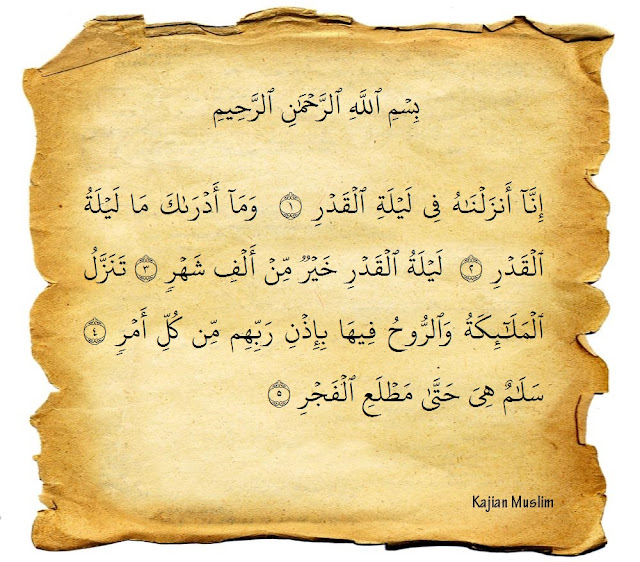 بِسْمِ ٱللَّهِ ٱلرَّحْمَٰنِ ٱلرَّحِيمِ
إِنَّآ أَنزَلْنَٰهُ فِى لَيْلَةِ ٱلْقَدْرِ ١ وَمَآ أَدْرَىٰكَ مَا لَيْلَةُ
ٱلْقَدْرِ ٢ لَيْلَةُ ٱلْقَدْرِ خَيْرٌ مِّنْ أَلْفِ شَهْرٍ ٣ تَنَزَّلُ
ٱلْمَلَٰٓئِكَةُ وَٱلرُّوحُ فِيهَا بِإِذْنِ رَبِّهِم مِّن كُلِّ أَمْرٍ ٤
سَلَٰمٌ هِىَ حَتَّىٰ مَطْلَعِ ٱلْفَجْرِ ٥
Kajian Muslim